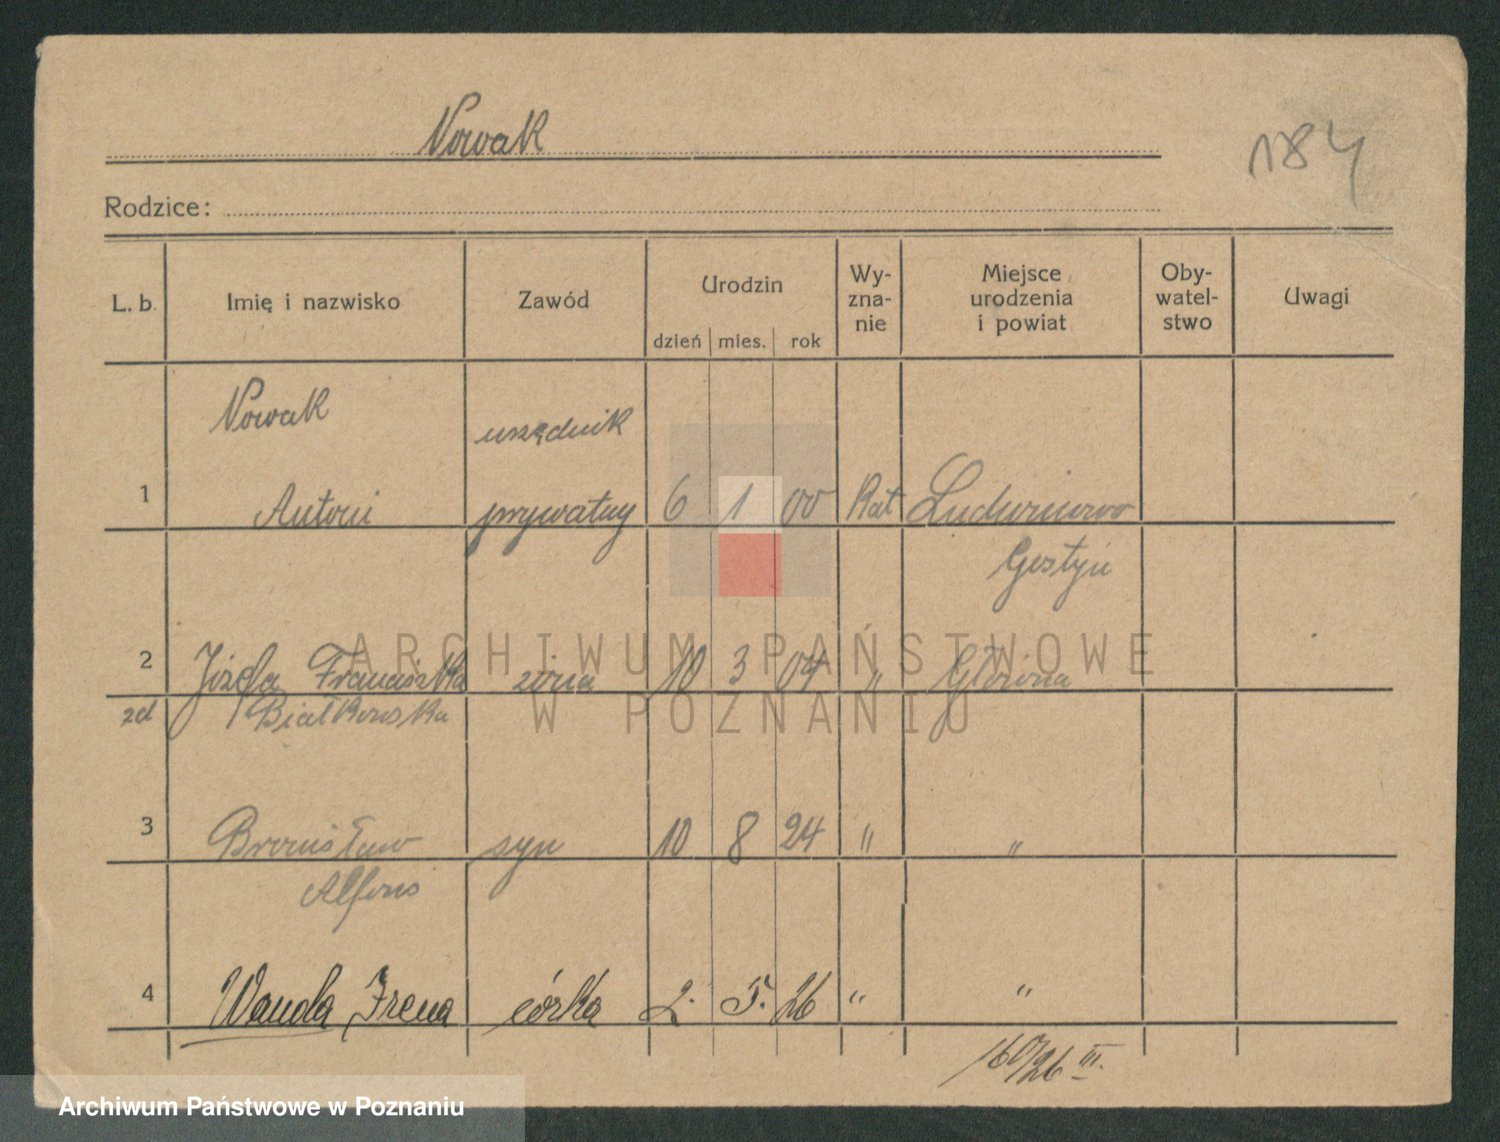 Nowak
1784
Rodzice:
L. b. Imię i nazwisko Zawód Urodzin Wy-zna-nie Miejsce urodzenia i powiat Oby-watel-stwo Uwagi
dzień mies. rok
Nowak urzędnik
1 Antoni prywatny 6 1 00 Kat Ludwinowo
Gostyń
2 Józefa Franciszka żona 10 3 04 " Główna
zd Białkowska
3 Bronisław syn 10 8 24 " "
Alfons
4 Wanda Irena córka 2. 5. 26 " "
160/26 III.
ARCHIWUM PAŃSTWOWE
W POZNANIU
Archiwum Państwowe w Poznaniu